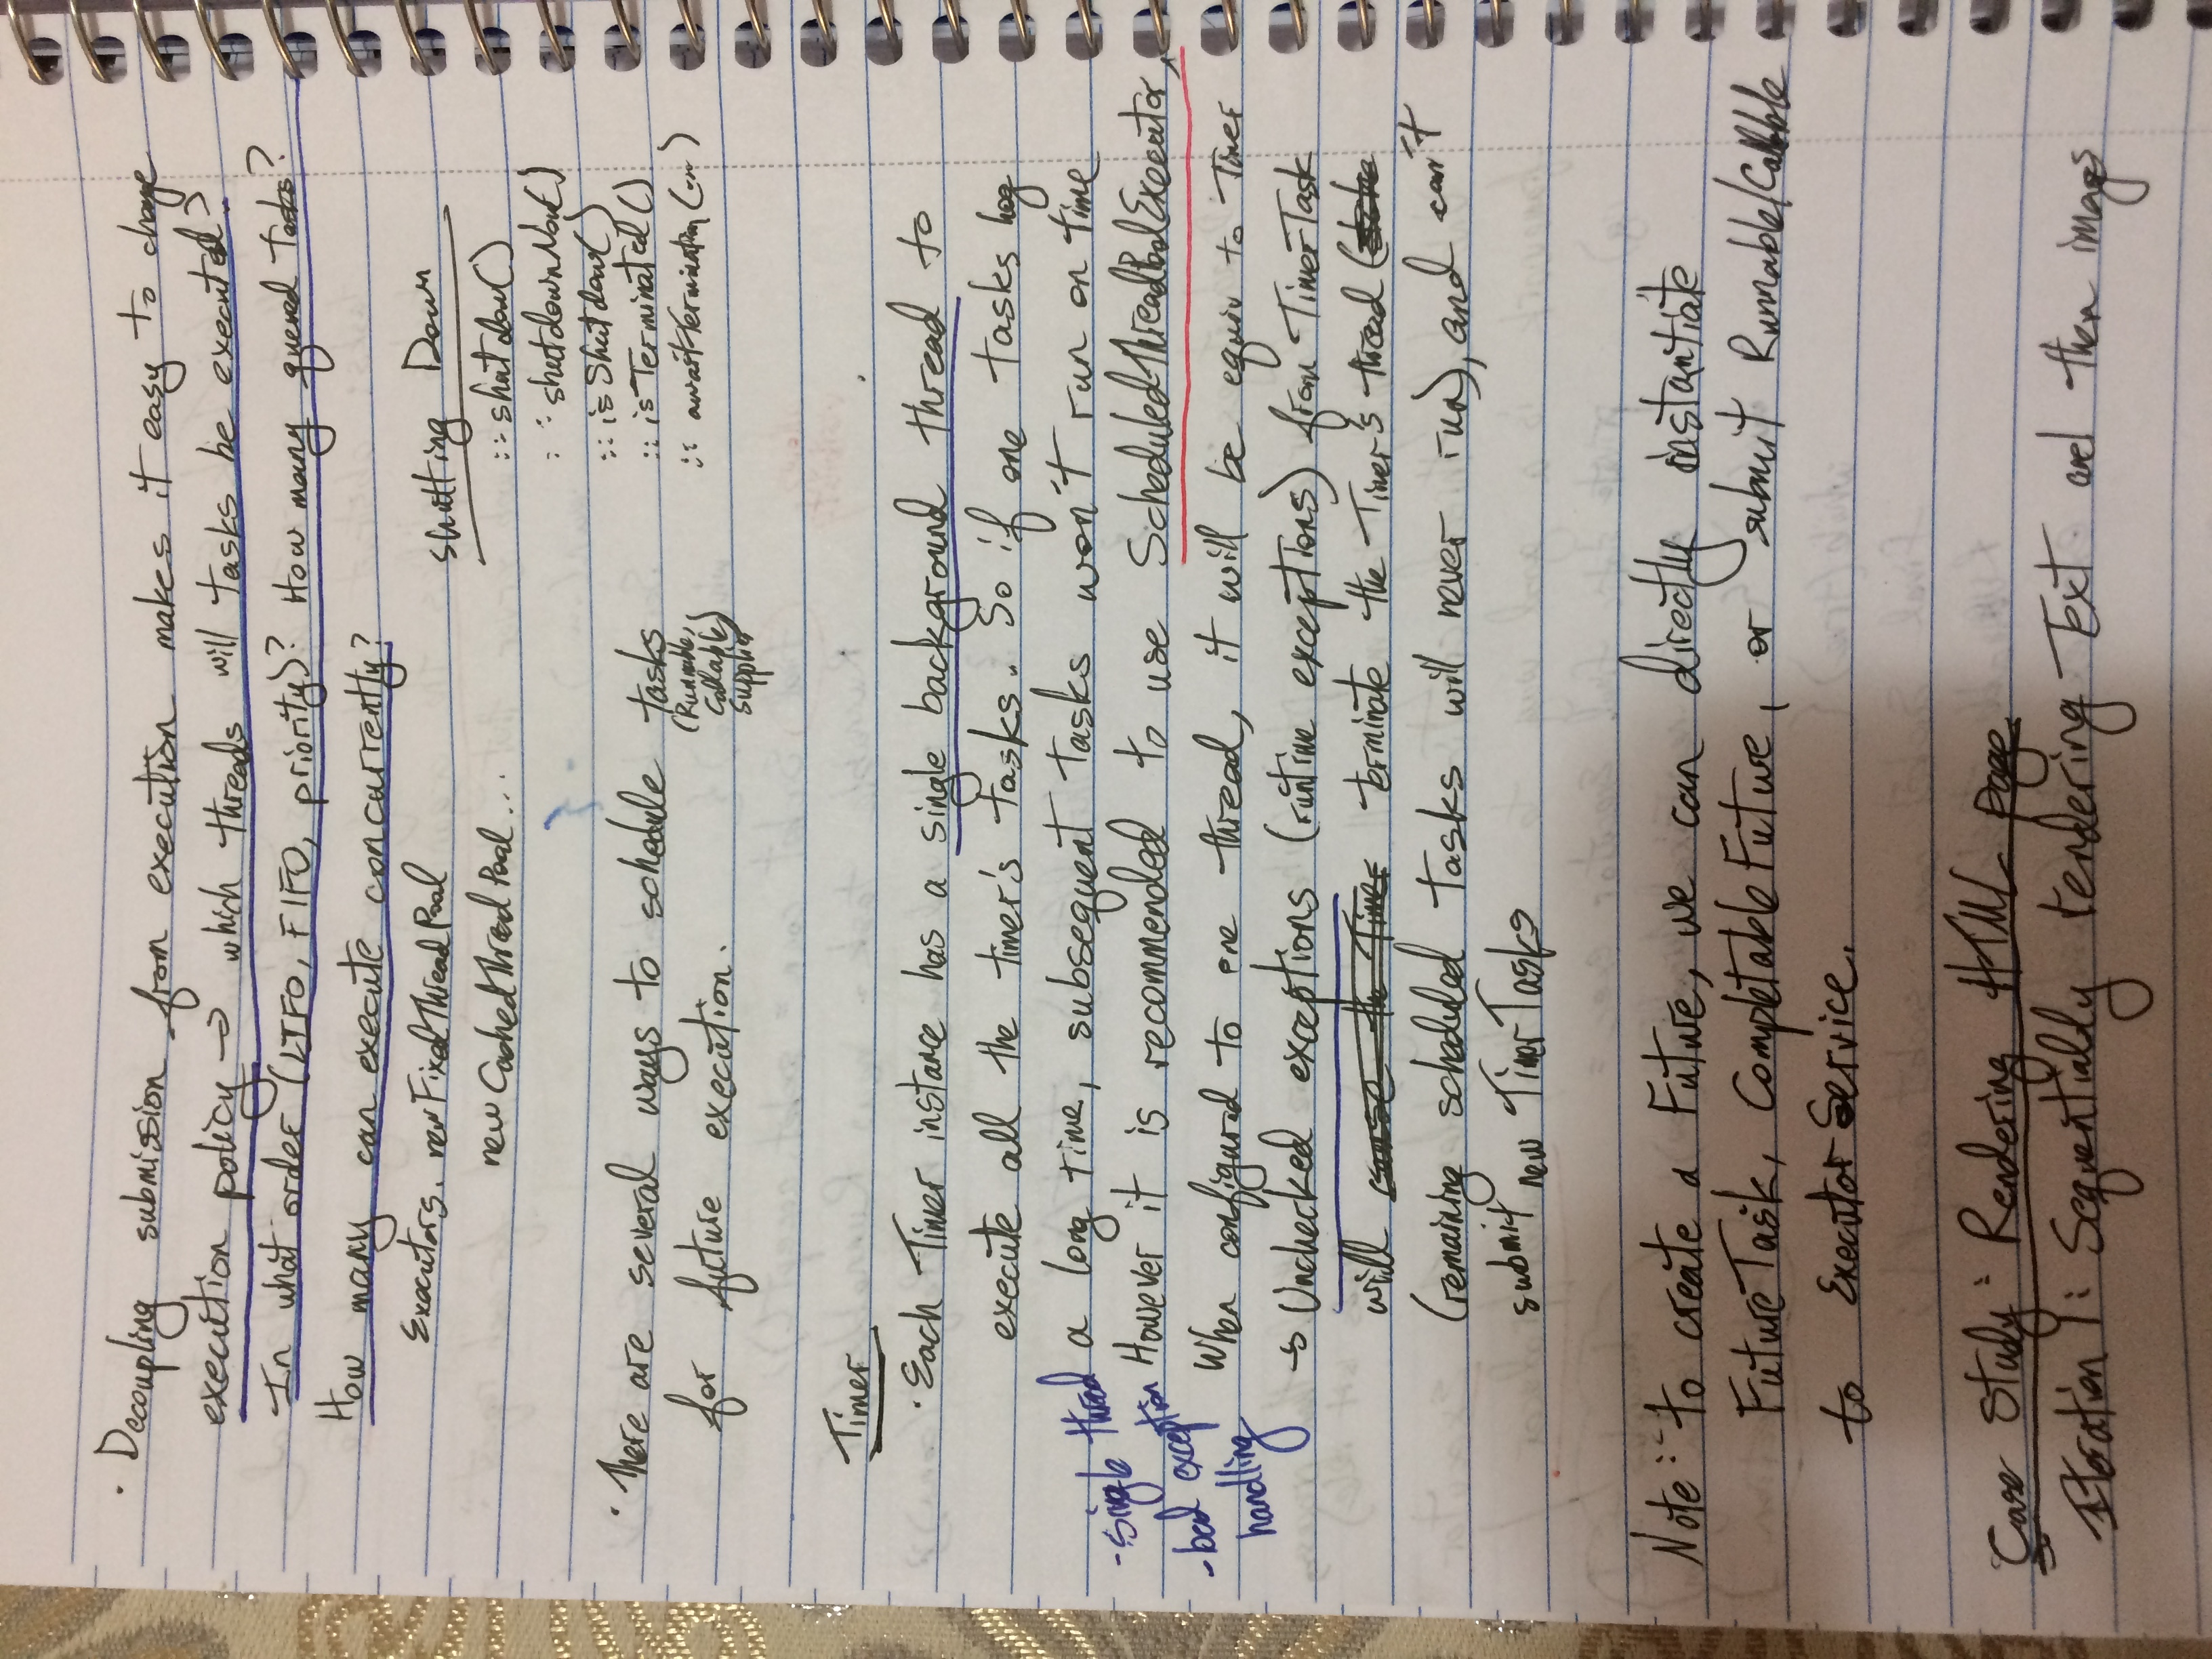 · Decoupling submission from execution makes it easy to change
execution policy → which threads will tasks be executed?
In what order (LIFO, FIFO, priority)? How many queued tasks?
How many can execute concurrently?
Executors. newFixedThreadPool
newCachedThreadPool...
shutting Down
:: shutdow()
:: shutdownNow()
:: isShutdow()
:: isTerminated()
:: awaitTermination(...)
· There are several ways to schedule tasks
(Runnable,
Callable)
Supplier
for future execution.
Timer
· Each Timer instance has a single background thread to
execute all the timer's tasks. So if one tasks hog
a long time, subsequent tasks won't run on time
- single thread
- bad exception
handling
However it is recommended to use ScheduledThreadPoolExecutor,
When configured to one thread, it will be equiv to Timer
→ Unchecked exceptions (runtime exceptions) from TimerTask
will cause the Timer terminate the Timer's thread
(remaining scheduled tasks will never run), and can't
submit new TimerTasks
Note: To create a Future, we can directly instantiate
FutureTask, CompletableFuture, or submit Runnable/Callable
to ExecutorService.
Case Study: Rendering HTML page
Iteration 1: Sequentially rendering Text and then images